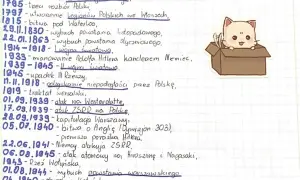 1795 - trzeci rozbiór Polski
1797 - utworzenie Legionów Polskich we Włoszech,
1815 - bitwa pod Waterloo,
29.11.1830 - wybuch powstania listopadowego,
22.01.1863 - wybuch powstania styczniowego
1914 - 1918 - I wojna światowa,
1933 - mianowanie Adolfa Hitlera kanclerzem Niemiec,
1939 - 1945 - II wojna światowa,
- upadek III Rzeszy,
11.11.1918 - odzyskanie niepodległości przez Polskę,
1919 - traktat wersalski,
01.09.1939 - atak na Westerplatte,
17.09.1939 - atak ZSRR na Polskę,
28.09.1939 - kapitulacja Warszawy,
- bitwa o Anglię (Dywizjon 303),
- pierwsza porażka Hitlera,
22.06.1941 - Niemcy atakują ZSRR,
06.08.1945 - atak atomowy na Hiroszimę i Nagasaki,
1943 - Rzeź Wołyńska,
01.08.1944 - wybuch powstania warszawskiego